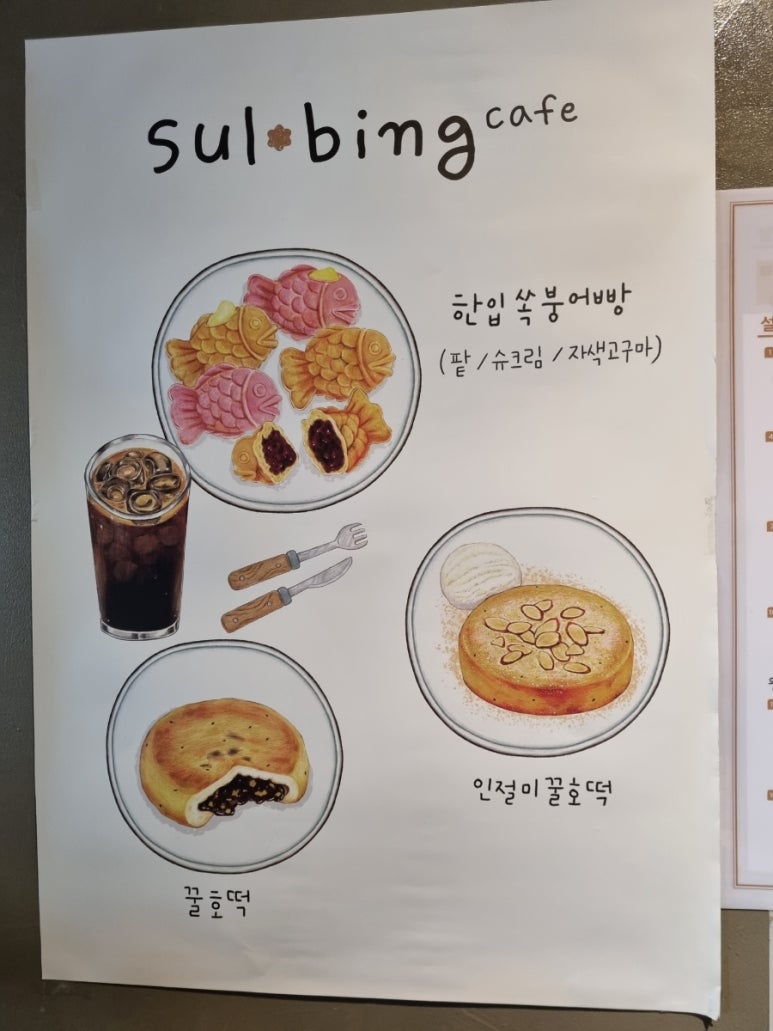 sul bing cafe
한입 쏙 붕어빵
(팥 / 슈크림 / 자색고구마)
인절미 꿀호떡
꿀호떡
설